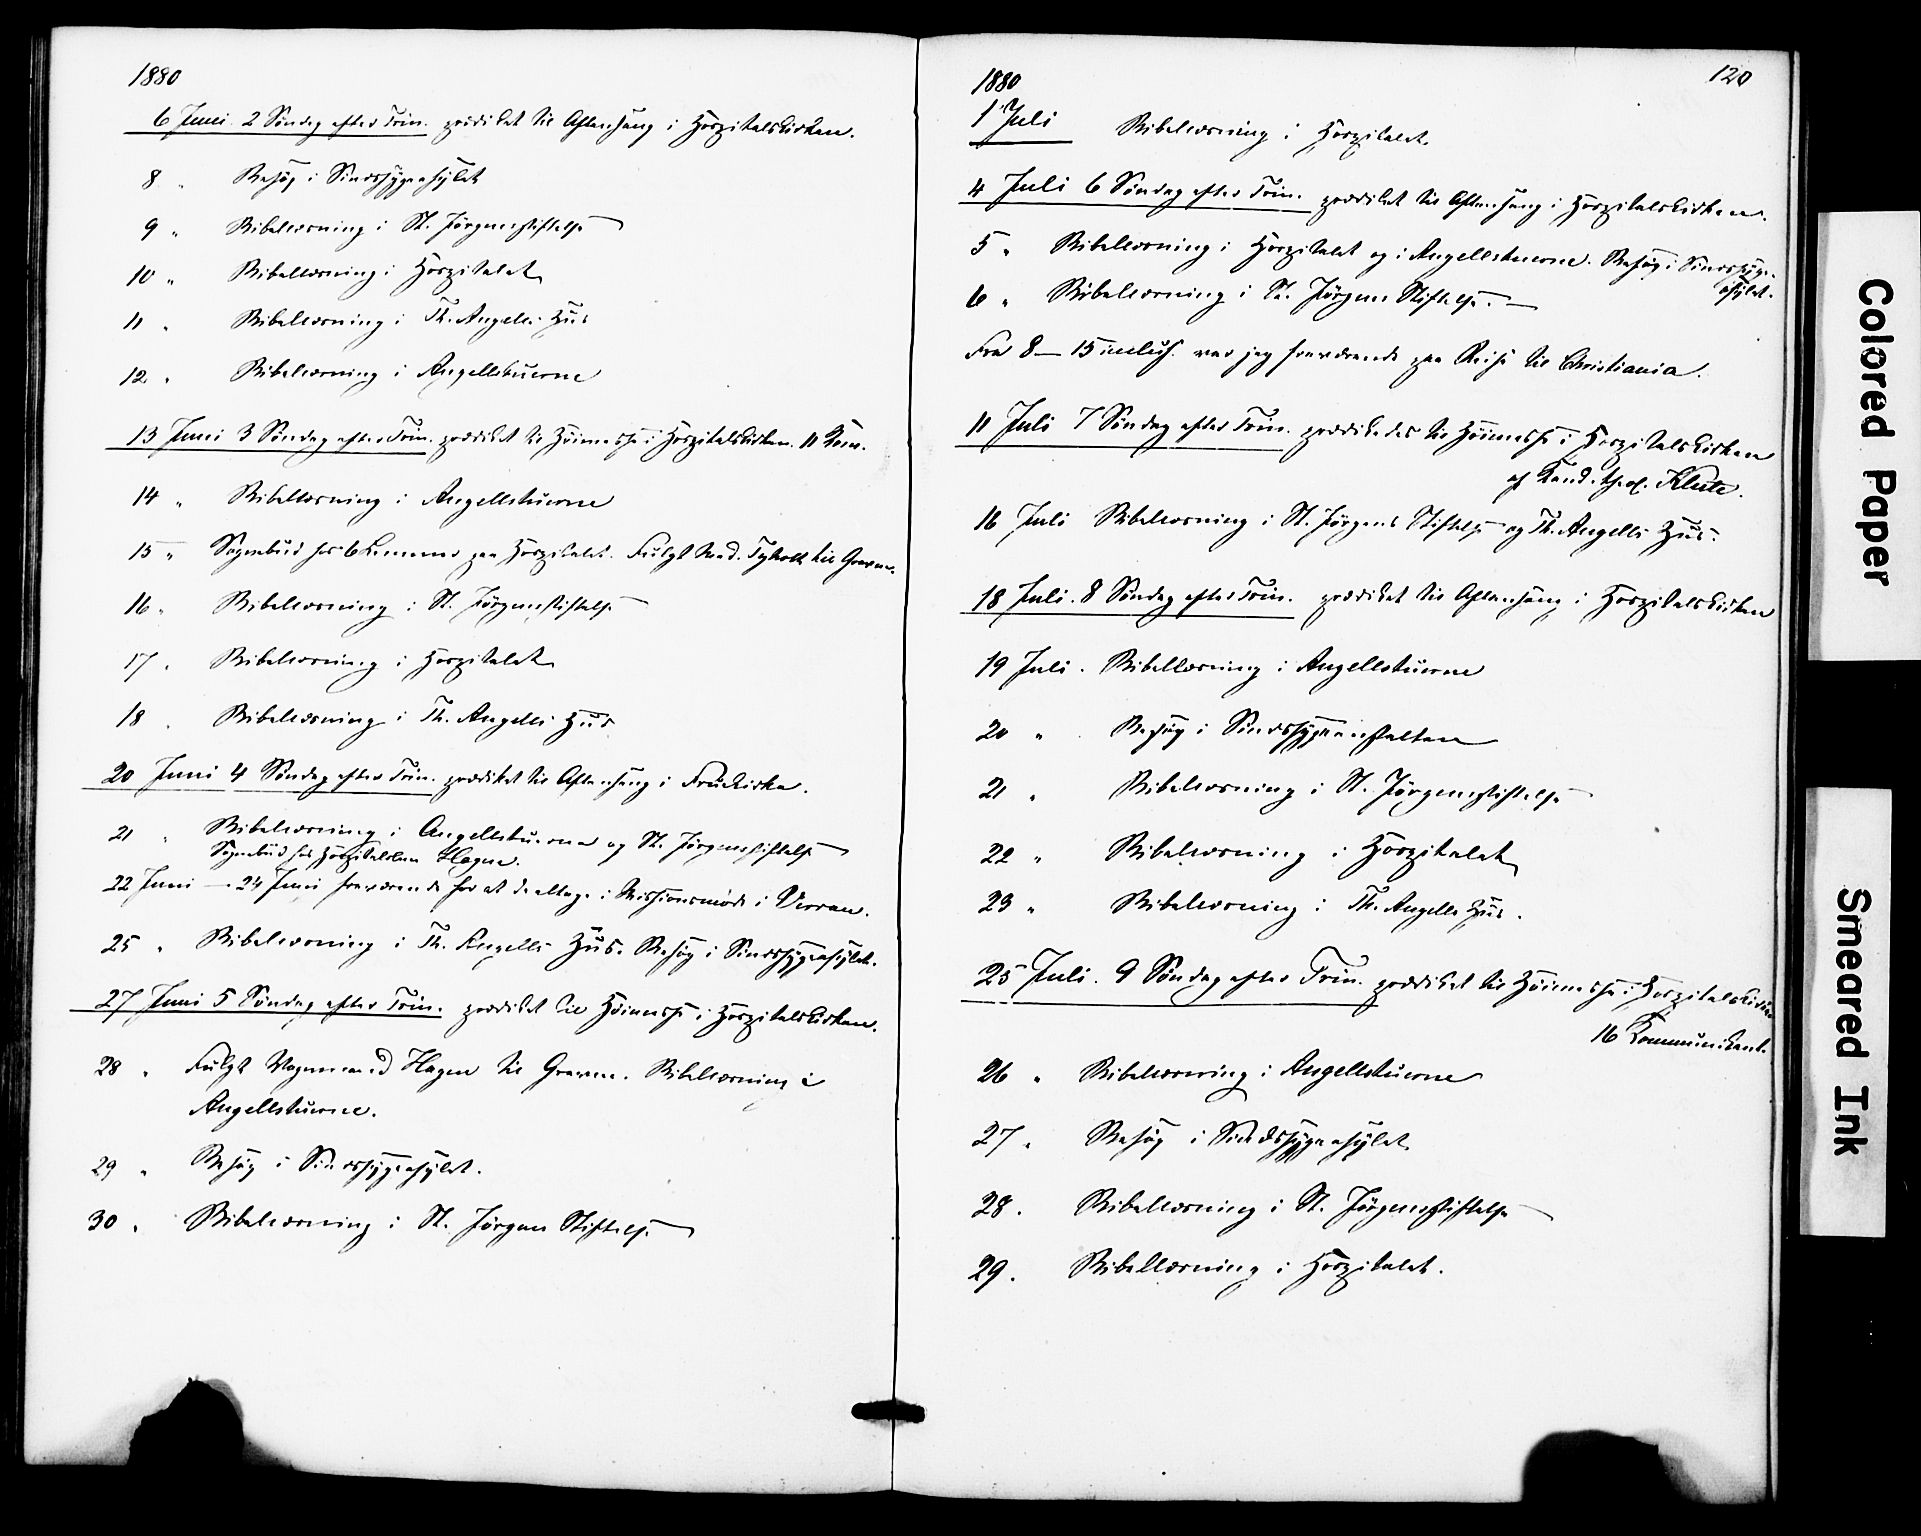 1880
6 Juni 2 Søndag efter Trin. prædiket til Aftensang i Hospitalskirken.
8 " Besøg i Sindssygeasylet
9 " Bibellæsning i St. Jørgensstiftelse
10 " Bibellæsning i Hospitalet
11 " Bibellæsning i Th. Angells Hus
12 " Bibellæsning i Angellstuerne
13 Juni 3 Søndag efter Trin. prædiket til Høimesse i Hospitalskirken. 11 Kom.
14 " Bibellæsning i Angellstuerne
15 " Sognebud hos 6 Lemmer paa Hospitalet. Fulgt Mad. Tyholt til Graven.
16 " Bibellæsning i St. Jørgensstiftelse
17 " Bibellæsning i Hospitalet
18 " Bibellæsning i Th. Angells Hus
20 Juni 4 Søndag efter Trin. prædiket til Aftensang i Fruekirke.
21 " Bibellæsning i Angellstuerne og St. Jørgensstiftelse
Sognebud hos Hospitalslem Hagen.
22 Juni — 24 Juni fraværende for at deeltage i Missionsmøde i Verran.
25 " Bibellæsning i Th. Angells Hus. Besøg i Sindssygeasylet.
27 Juni 5 Søndag efter Trin. prædiket til Høimesse i Hospitalskirken.
28 " Fulgt Vognmand Hagen til Graven. Bibellæsning i
Angellstuerne.
29 " Besøg i Sindssygeasylet.
30 " Bibellæsning i St. Jørgens Stiftelse
120
1880
1 Juli Bibellæsning i Hospitalet.
4 Juli 6 Søndag efter Trin. prædiket til Aftensang i Hospitalskirken.
5 " Bibellæsning i Hospitalet og i Angellstuerne. Besøg i Sindssyge-
asylet.
6 " Bibellæsning i St. Jørgens Stiftelse.
Fra 8 — 15 inclus. var jeg fraværende paa Reise til Christiania.
11 Juli 7 Søndag efter Trin. prædikedes til Høimesse i Hospitalskirken
af Kand. theol. Klüte.
16 Juli Bibellæsning i St. Jørgens Stiftelse og Th. Angells Hus.
18 Juli. 8 Søndag efter Trin. prædiket til Aftensang i Hospitalskirken
19 Juli. Bibellæsning i Angellstuerne
20 " Besøg i Sindssygeanstalten
21 " Bibellæsning i St. Jørgensstiftelse
22 " Bibellæsning i Hospitalet
23 " Bibellæsning i Th. Angells Hus.
25 Juli. 9 Søndag efter Trin. prædiket til Høimesse i Hospitalskirken
16 Kommunikant.
26 " Bibellæsning i Angellstuerne
27 " Besøg i Sindssygeasylet
28. Bibellæsning i St. Jørgensstiftelse
29. Bibellæsning i Hospitalet.
Colored Paper
Smeared Ink